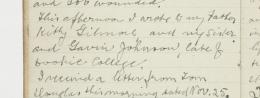 and 200 wounded.
This afternoon I wrote to my Father
Kitty Gilmour, and my Sister
and Gavin Johnson, late of
College.
I received a letter from Tom
Douglas this morning dated Nov. 25.